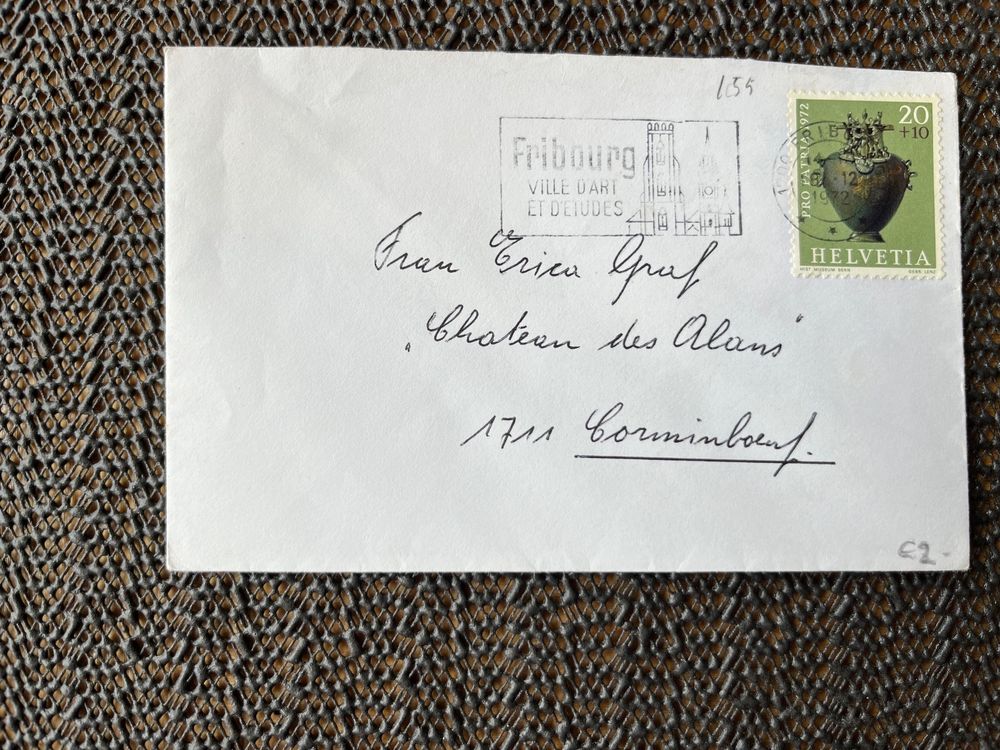 155
Fribourg
VILLE D'ART
ET D'ETUDES
14
12
1972
20
+10
PRO PATRIA 1972
HELVETIA
HIST MUSEUM BERN GEBR. LENZ
Frau Erica Graf
"Chateau des Alans"
1711 Corminboeuf.
€2-